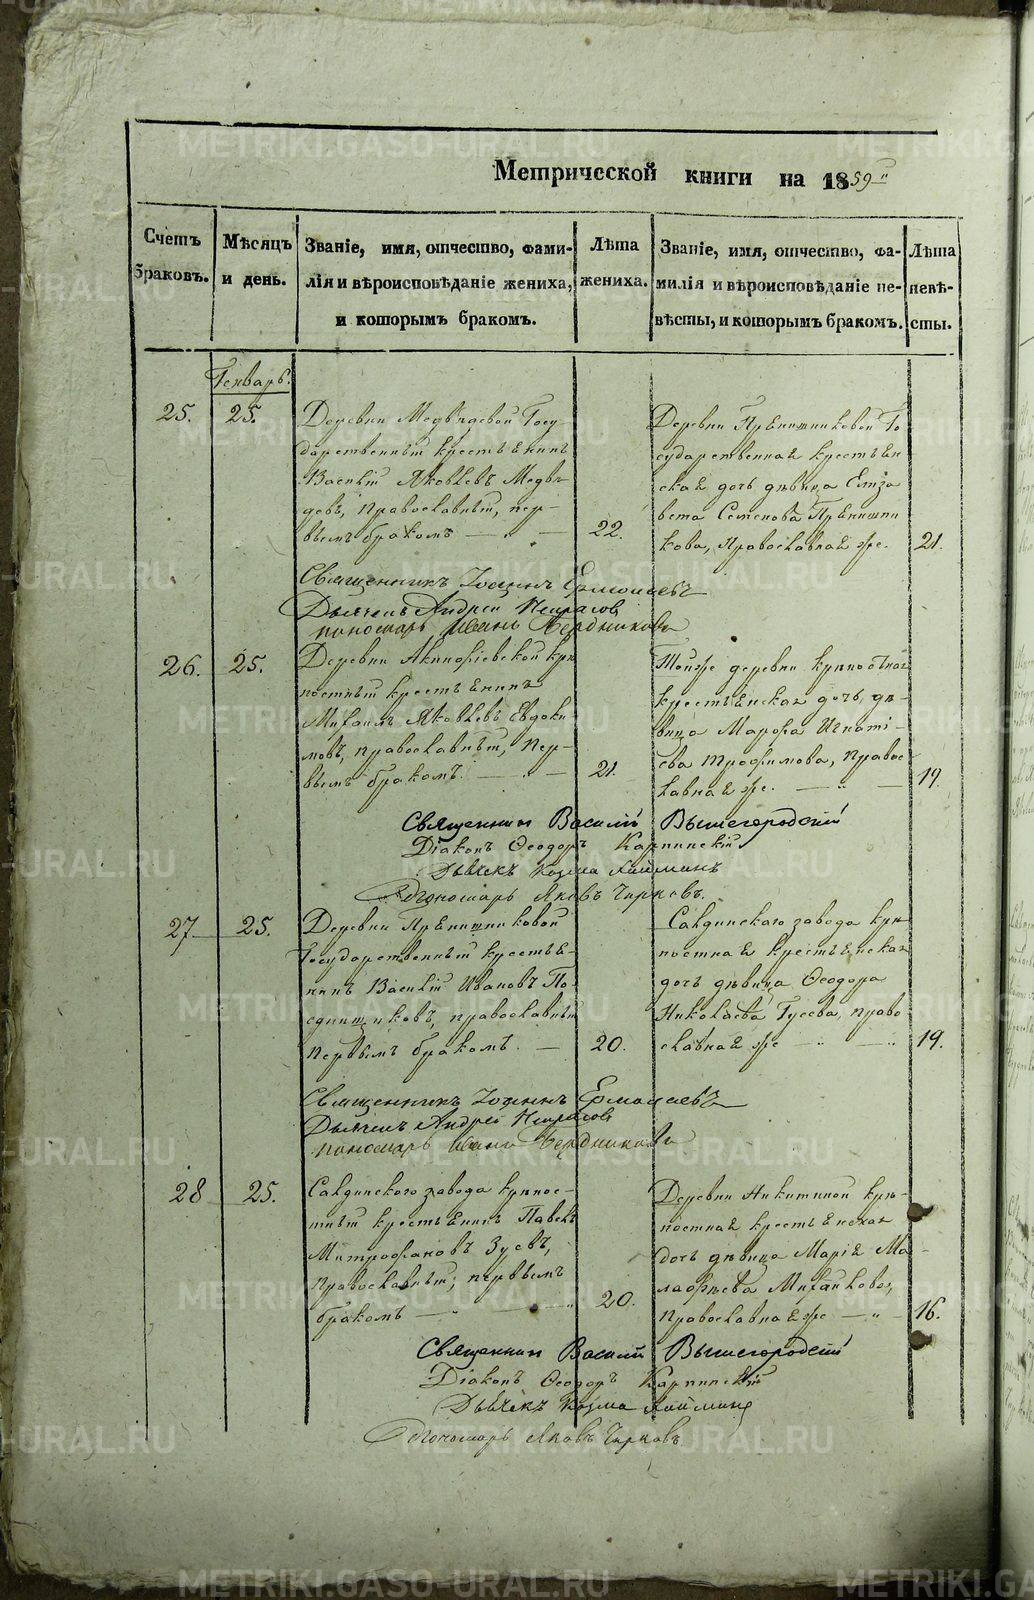 Метрической книги на 1859 г
Счетъ браковъ.
Мѣсяцъ и день.
Званіе, имя, отчество, фами-
лія и вѣроисповѣданіе жениха,
и которымъ бракомъ.
Лѣта жениха.
Званіе, имя, отчество, фа-
милія и вѣроисповѣданіе не-
вѣсты, и которымъ бракомъ.
Лѣта невѣ-
сты.
Генварь.
25.
25.
Деревни Медвѣдевой Госу-
дарственный крестьянинъ
Василій Яковлевъ Медвѣ-
девъ, православный, пер-
вымъ бракомъ — „ —
22.
Деревни Прянишниковой Го-
сударственная крестьян
ская дочь дѣвица Елиза
вета Семенова Прянишни
кова, православная же.
21.
Священникъ Іоаннъ Ермолаевъ
Дьячекъ Андрей Некрасов
пономарь Иванъ Бердниковъ
26.
25.
Деревни Акинфіевской крѣ
постный крестьянинъ
Михаилъ Яковлевъ Евдоки
мовъ, православный, пер-
вымъ бракомъ. — „ —
21.
Тойже деревни крѣпостная
крестьянская дочь, дѣ-
вица Марфа Игнаті-
ева Трофимова, правос
лавная же. — „ —
19.
Священник Василій Вышегородскій
Діаконъ Ѳеодоръ Карпинскій
Дьячекъ Козма Хайминъ
Пономарь Яковъ Чирковъ.
27.
25.
Деревни Прянишниковой
Государственный крестья-
нинъ Василій Ивановъ По
православный
первымъ бракомъ. —
20.
Салдинскаго завода крѣ-
постная крестьянская
дочь дѣвица Ѳеодора
Николаева Гусева, право
славная же — „ — „
19.
Священникъ Іоаннъ Ермолаевъ
Дьячекъ Андрей Некрасов
пономарь Иванъ Бердниковъ
28
25.
Салдинского завода крѣпос-
тный крестьянинъ Павелъ
Митрофановъ Зуевъ,
православный, первымъ
бракомъ — „ — „
20.
Деревни Никитиной крѣ-
постная крестьянская
дочь дѣвица Марія Ма-
лафѣева Михайлова,
православная же — „
16.
Священник Василій Вышегородскій
Діаконъ Ѳеодоръ Карпинскій
Дьячекъ Козма Хайминъ
Пономарь Яковъ Чирковъ
METRIKI.GASO-URAL.RU